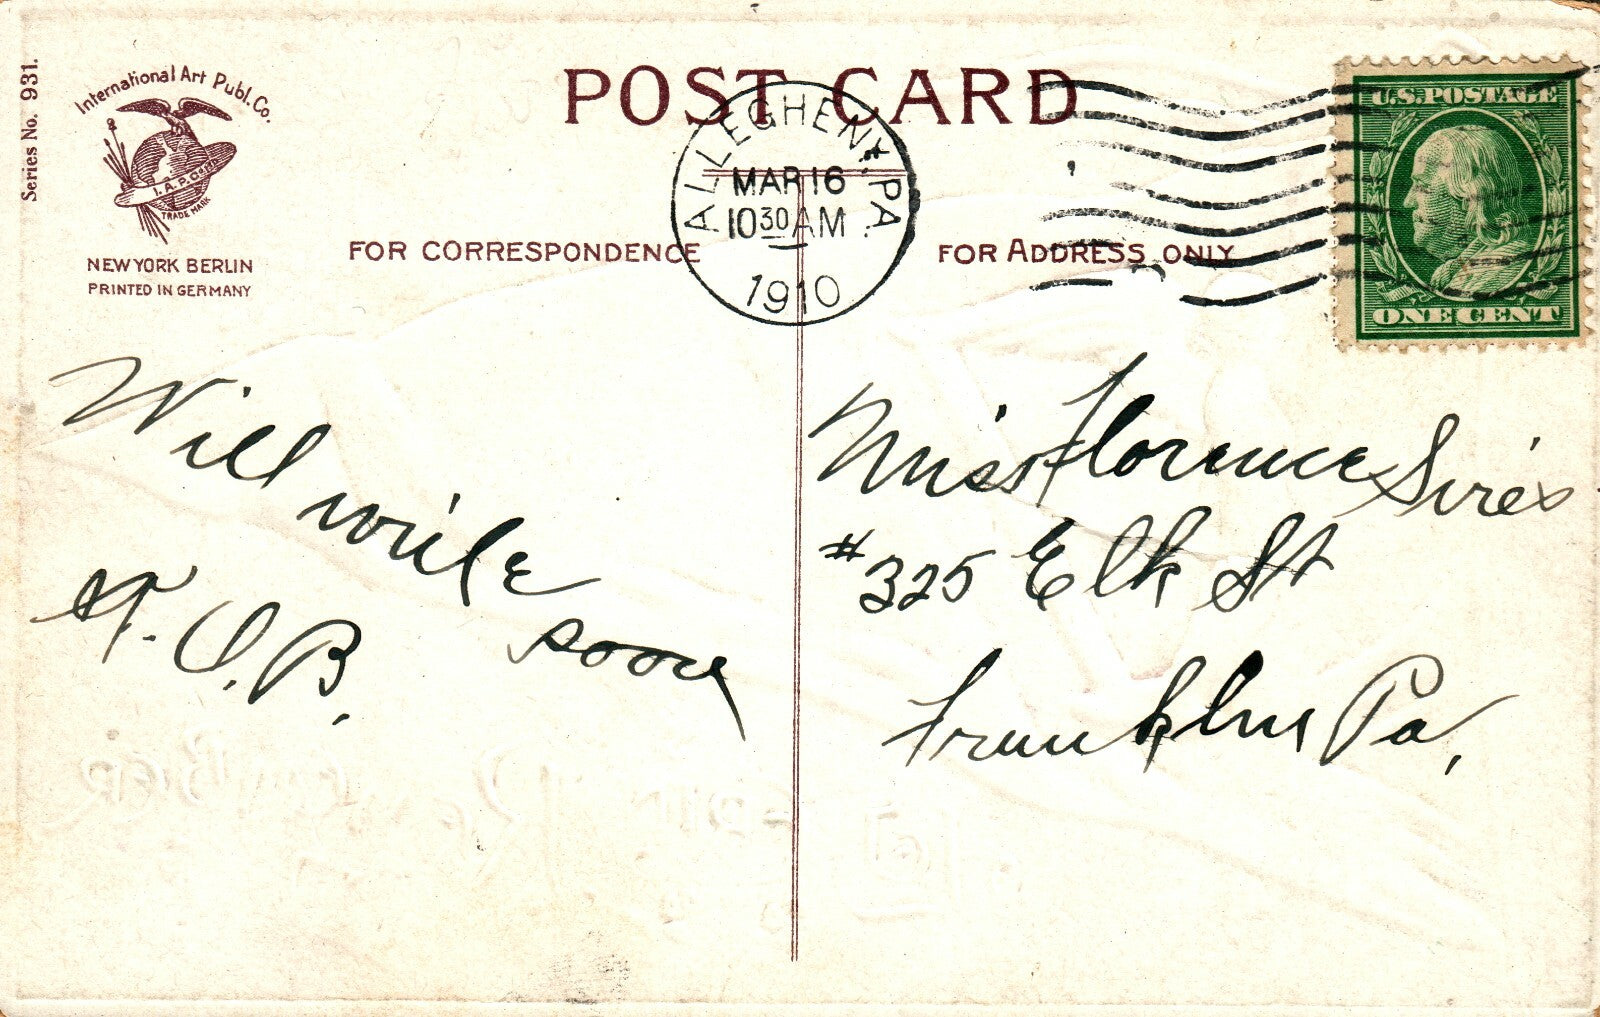 Series No. 931.
International Art Publ. Co.
I.A.P.Co.
TRADE MARK
NEW YORK BERLIN
PRINTED IN GERMANY
POST CARD
FOR CORRESPONDENCE
FOR ADDRESS ONLY
ALLEGHENY, PA.
MAR 16
10 30 AM
1910
U.S. POSTAGE
ONE CENT
Will
write
soon
O. B.
Miss Florence
# 325 Elk St
Franklin Pa.